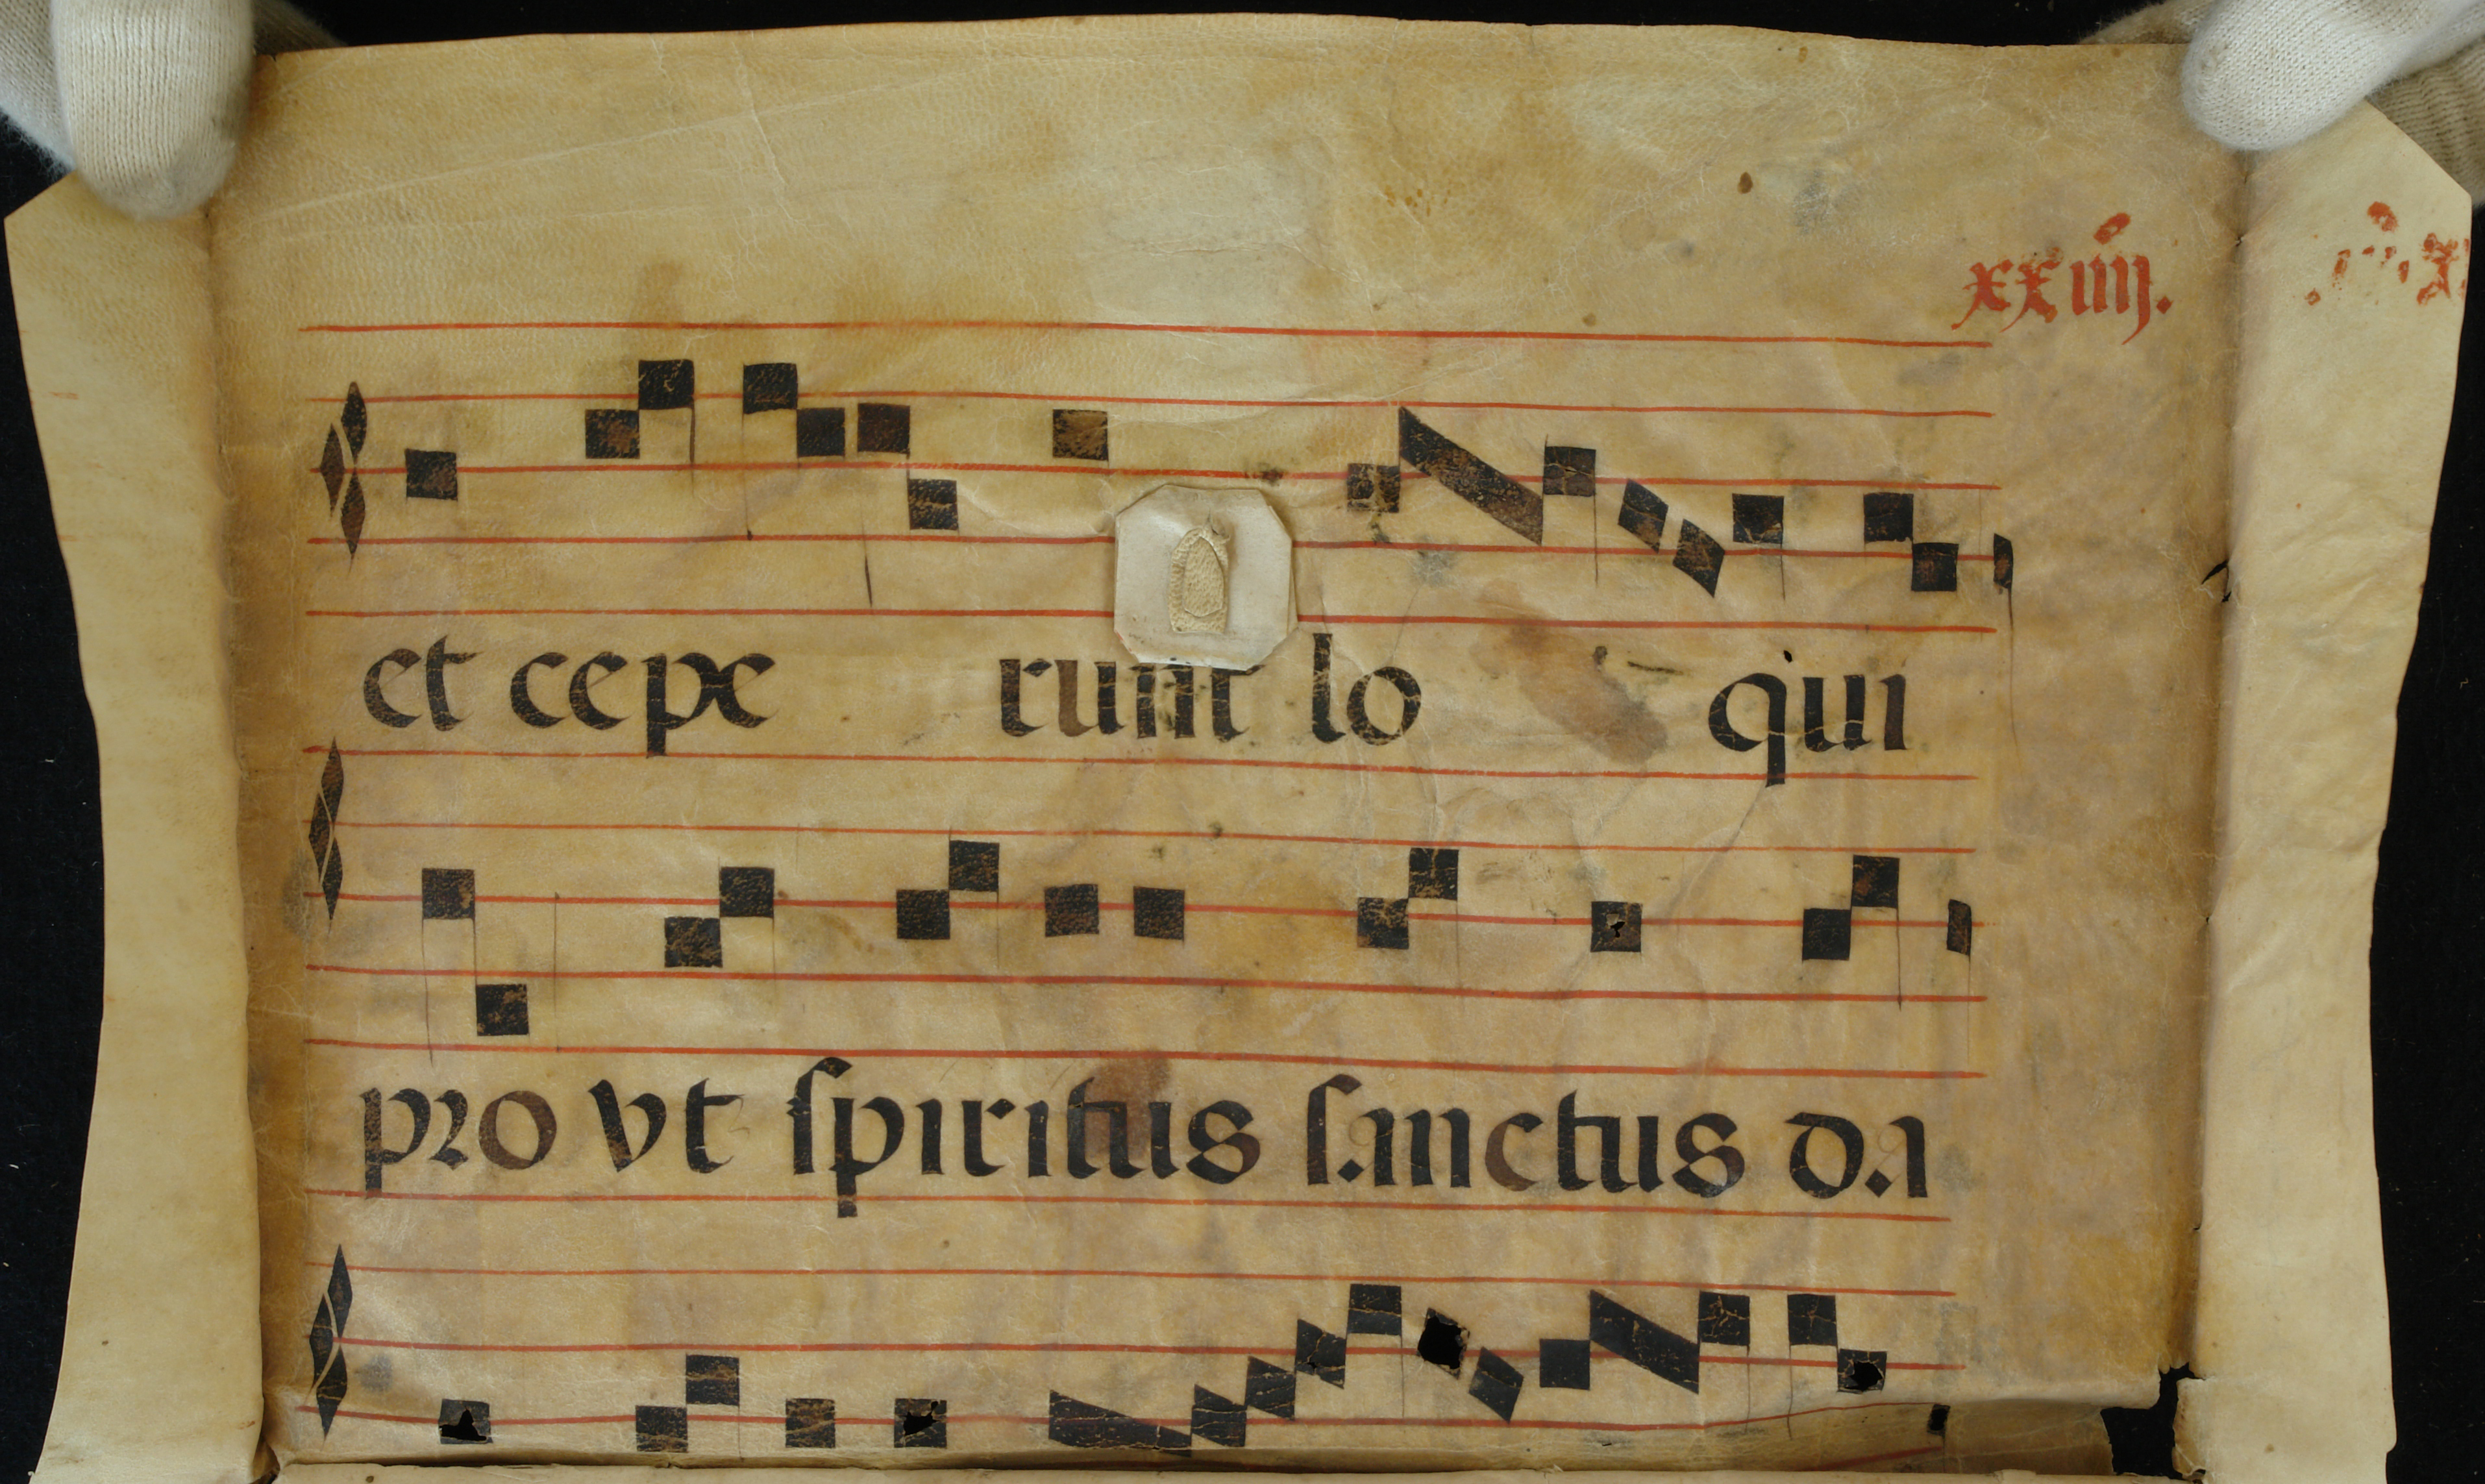 xxiiij.
et cepe runt lo qui
pro vt ſpiritus ſanctus da